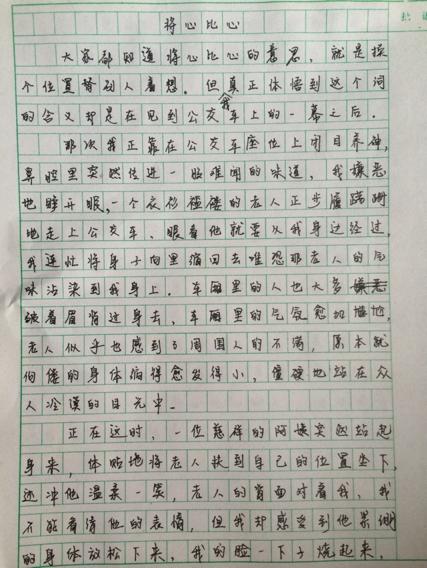 将心比心
大家都知道将心比心的意思，就是换
个位置替别人着想。但我真正体悟到这个词
的含义却是在见到公交车上的一幕之后。
那次我正靠在公交车座位上闭目养神，
鼻腔里突然传进一股难闻的味道，我嫌恶
地睁开眼，一个衣衫褴褛的老人正步履蹒跚
地走上公交车、眼看他就要从我身边经过，
我连忙将身子向里缩回去唯恐那老人的气
味沾染到我身上。车厢里的人也大多嫌恶
皱着眉背过身去，车厢里的气氛愈加尴尬，
老人似乎也感到了周围人的不满，原本就
佝偻的身体缩得愈发得小，僵硬地站在众
人冷漠的目光中。
正在这时，一位慈祥的阿姨突然站起
身来，体贴地将老人扶到自己的位置坐下，
还冲他温柔一笑，老人的背面对着我，我
不能看清他的表情，但我却感受到他紧绷
的身体放松下来，我的脸一下子烧起来，